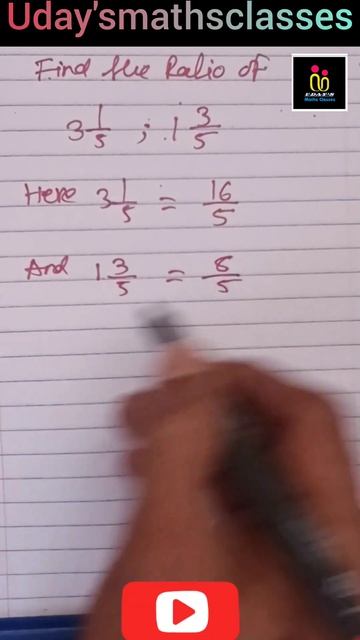 Uday'smathsclasses
Find the Ratio of
3 1/5 ; 1 3/5
UDAY'S
Maths Classes
Here 3 1/5 = 16/5
And 1 3/5 = 8/5